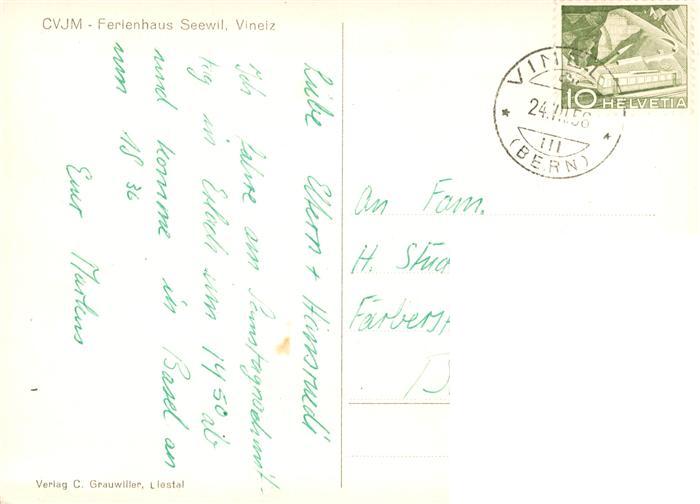 CVJM - Ferienhaus Seewil, Vinelz
Liebe Eltern + Hansruedi
Ich fahre am Samstagnachmit-
tag in Erlach um 14 50 ab
und komme in Basel an
um 18 36
Euer Markus
Verlag C. Grauwiller, Liestal
10 HELVETIA
24.VII.56
III
(BERN)
An Fam.
H.